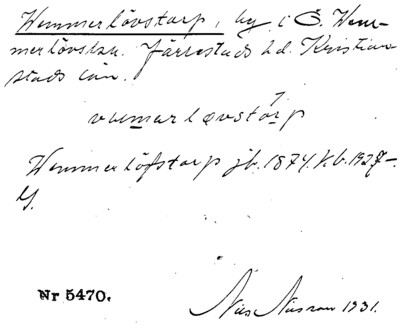 Hemmerlövstorp, by i Ö. Hem-
merlövs sn. Järrestads hd. Kristian
stads län.
Hemmerlöfstorp jb. 1874. kb. 1927-
Nr 5470.
Nils Nilsson 1931.